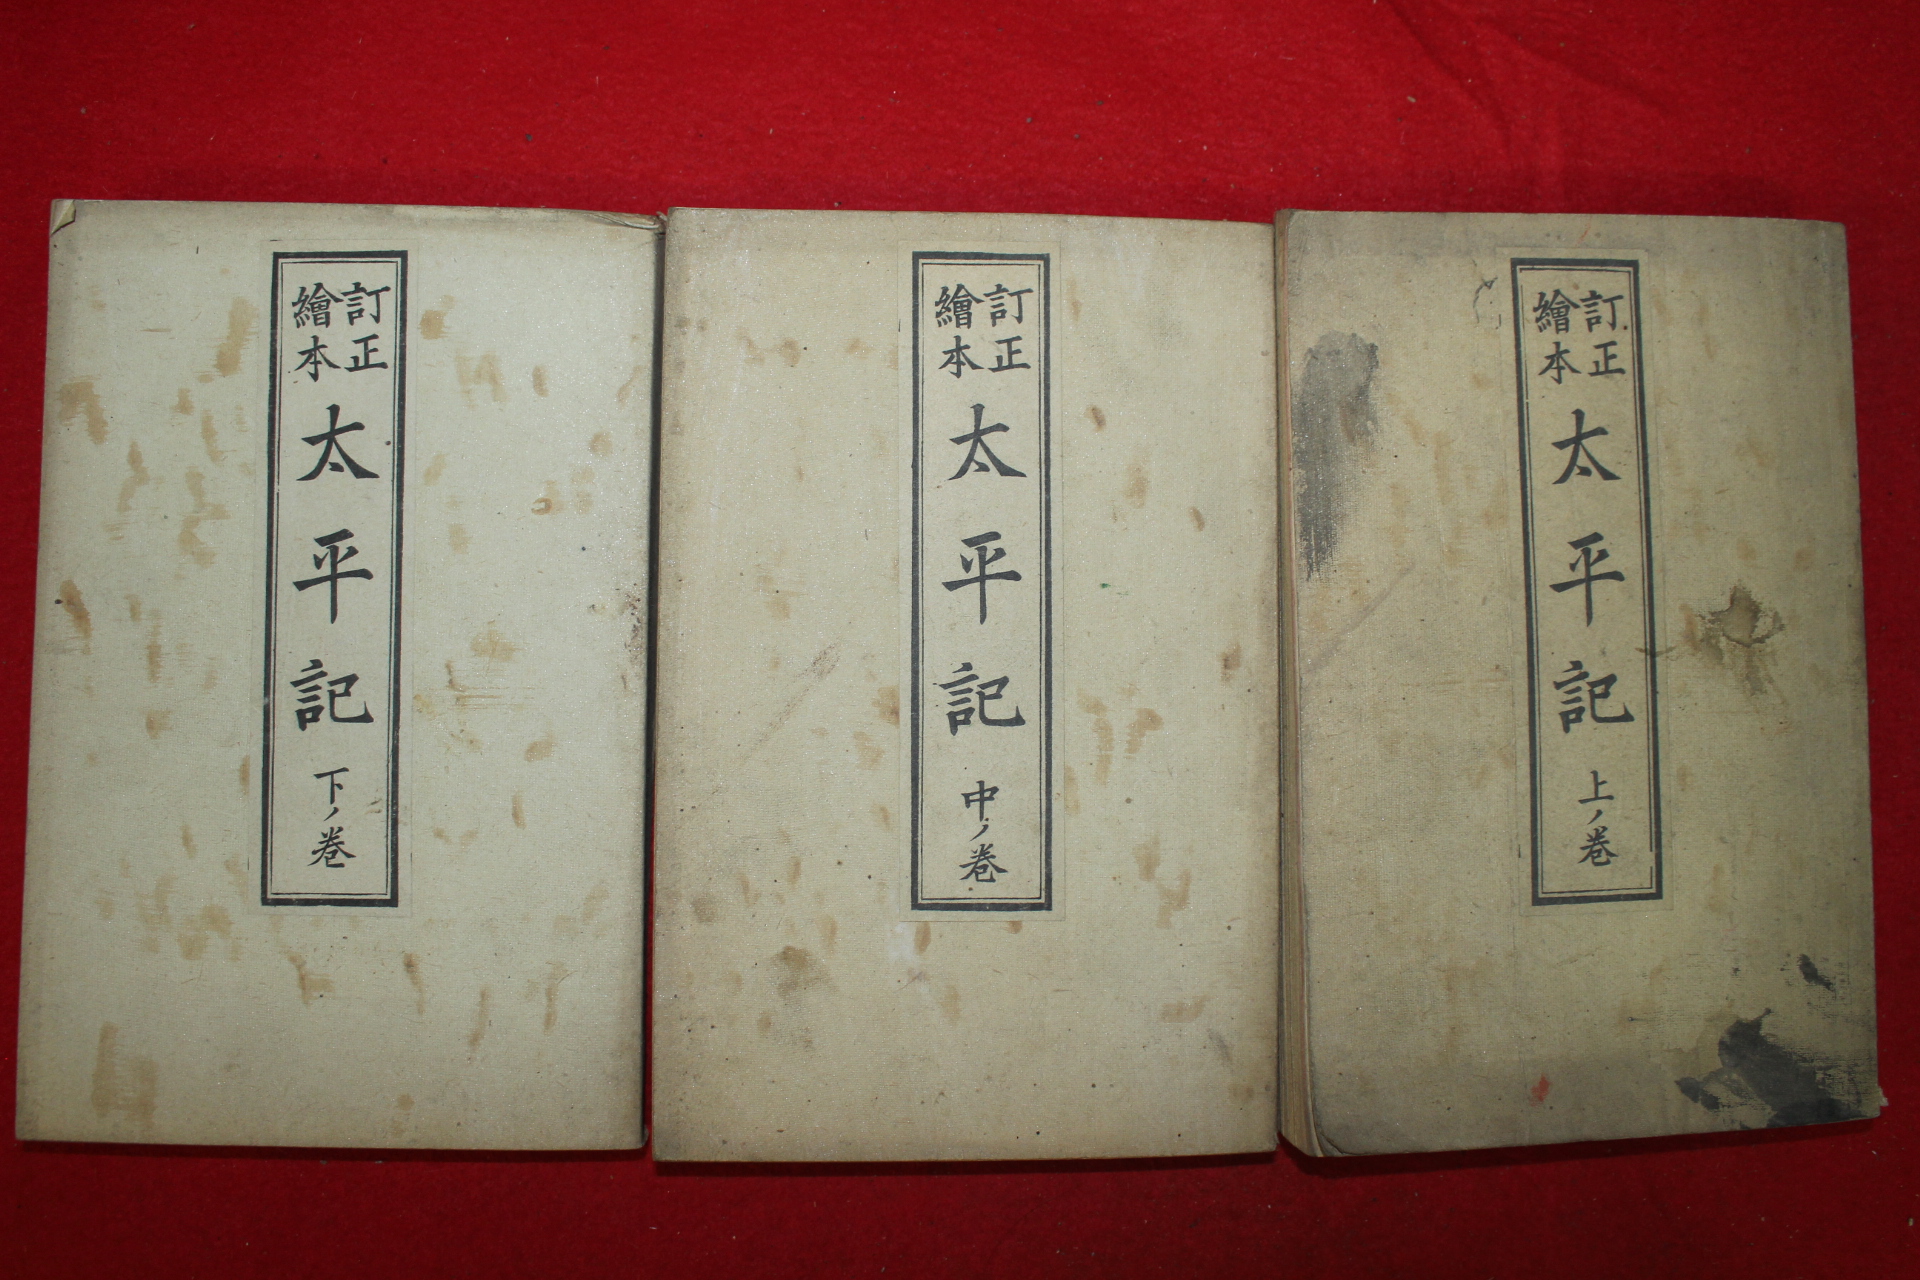 訂正
繪本
太平記
上ノ巻
訂正
繪本
太平記
中ノ巻
訂正
繪本
太平記
下ノ巻